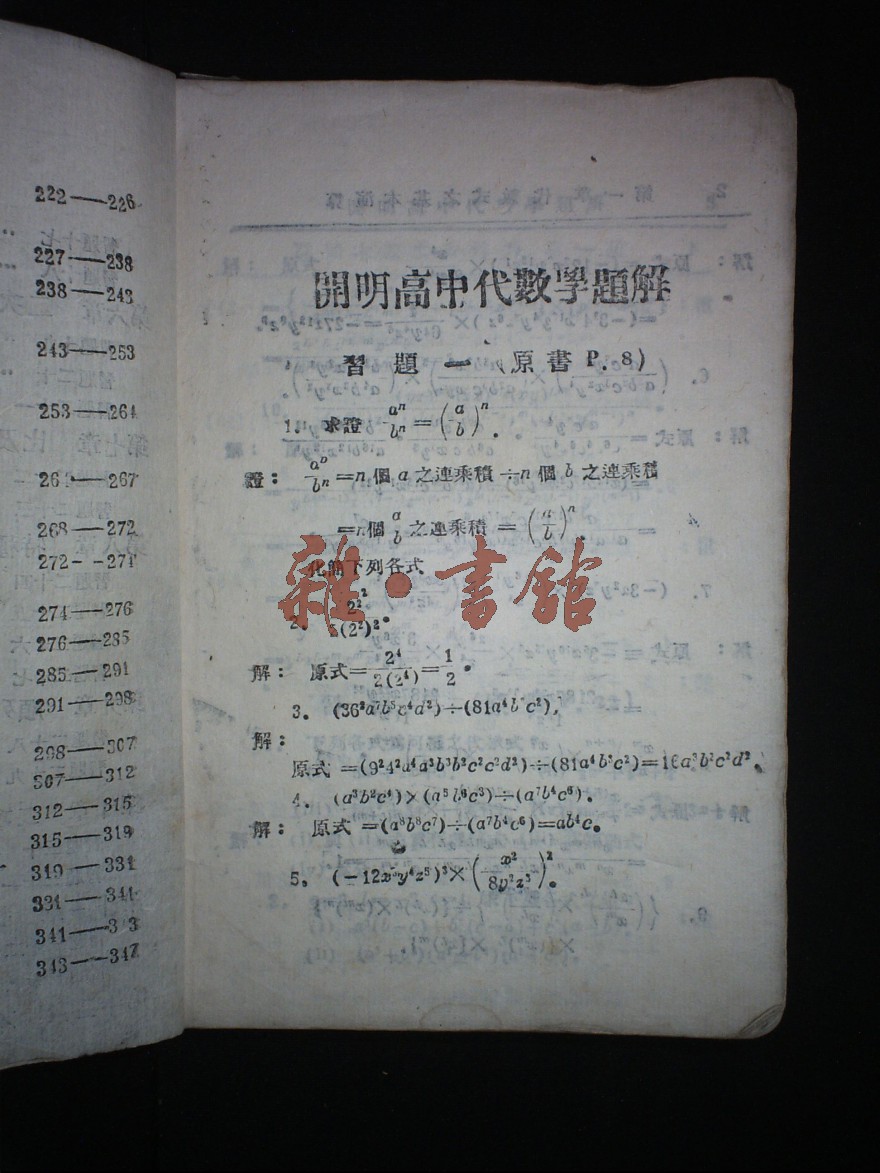 222——226
227——238
238——243
243——253
253——264
264——267
268——272
272--271
274——276
276——285
285——291
291——298
298——307
307——312
312——315
315——319
319——331
331——341
341——343
343——347
開明高中代數學題解
習 題 一 (原書 P. 8)
1. 求證 aⁿ/bⁿ = (a/b)ⁿ.
證: aⁿ/bⁿ = n 個 a 之連乘積 ÷ n 個 b 之連乘積
= n個 a/b 之連乘積 = (a/b)ⁿ.
化簡下列各式
雜·書舘
2.
解: 原式 = 2⁴/2(2⁴) = 1/2.
3. (36²a⁷b⁵c⁴d²)÷(81a⁴b c²),
解:
原式 =(9²4²a⁴a³b³b²c²c²d²)÷(81a⁴b³c²)=16a³b²c²d².
4. (a³b²c⁴)×(a⁵b⁶c³)÷(a⁷b⁴c⁶).
解: 原式 =(a⁸b⁸c⁷)÷(a⁷b⁴c⁶)=ab⁴c.
5. (-12x³y⁴z⁵)³×(x²/8y²z³)².